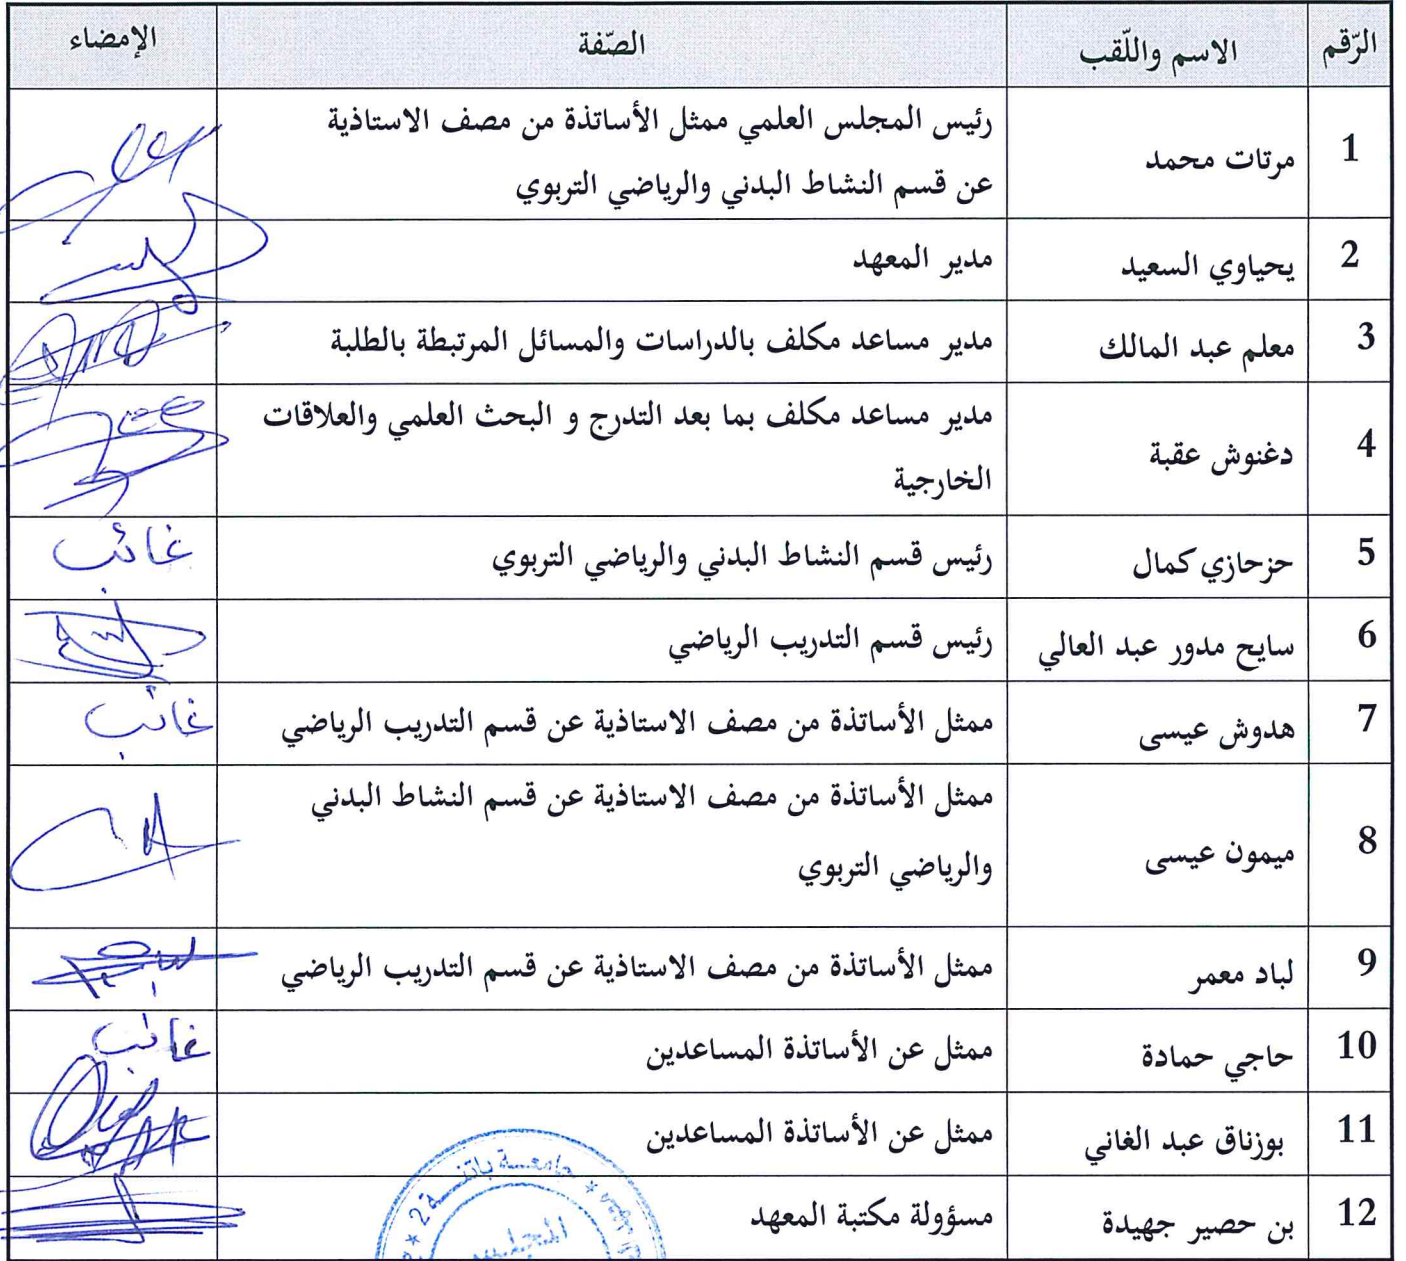 الرّقم الاسم واللّقب الصّفة الإمضاء
1 مرتات محمد رئيس المجلس العلمي ممثل الأساتذة من مصف الاستاذية
عن قسم النشاط البدني والرياضي التربوي
2 يحياوي السعيد مدير المعهد
3 معلم عبد المالك مدير مساعد مكلف بالدراسات والمسائل المرتبطة بالطلبة
4 دغنوش عقبة مدير مساعد مكلف بما بعد التدرج و البحث العلمي والعلاقات
الخارجية
5 حزحازي كمال رئيس قسم النشاط البدني والرياضي التربوي غائب
6 سايح مدور عبد العالي رئيس قسم التدريب الرياضي
7 هدوش عيسى ممثل الأساتذة من مصف الاستاذية عن قسم التدريب الرياضي غائب
8 ميمون عيسى ممثل الأساتذة من مصف الاستاذية عن قسم النشاط البدني
والرياضي التربوي
9 لباد معمر ممثل الأساتذة من مصف الاستاذية عن قسم التدريب الرياضي
10 حاجي حمادة ممثل عن الأساتذة المساعدين غائب
11 بوزناق عبد الغاني ممثل عن الأساتذة المساعدين
12 بن حصير جهيدة مسؤولة مكتبة المعهد
جامعة باتنة 2
المجلس